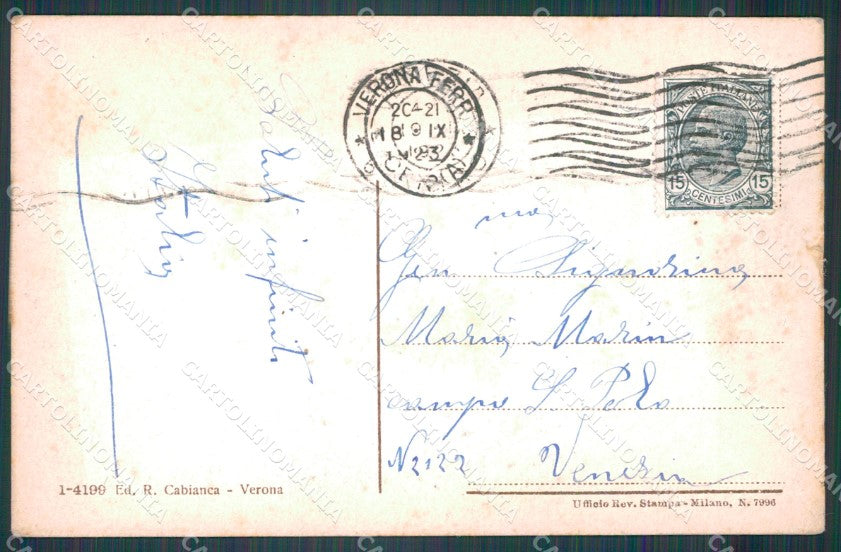 Saluti infiniti
VERONA FERR
20-21
18 IX
23
POSTE ITALIANE
15 15
CENTESIMI
Gen ma Signorina
Maria Marin
campo S. Polo
N 2122 Venezia
1-4199 Ed. R. Cabianca - Verona
Ufficio Rev. Stampa - Milano, N. 7996
CARTOLINOMANIA